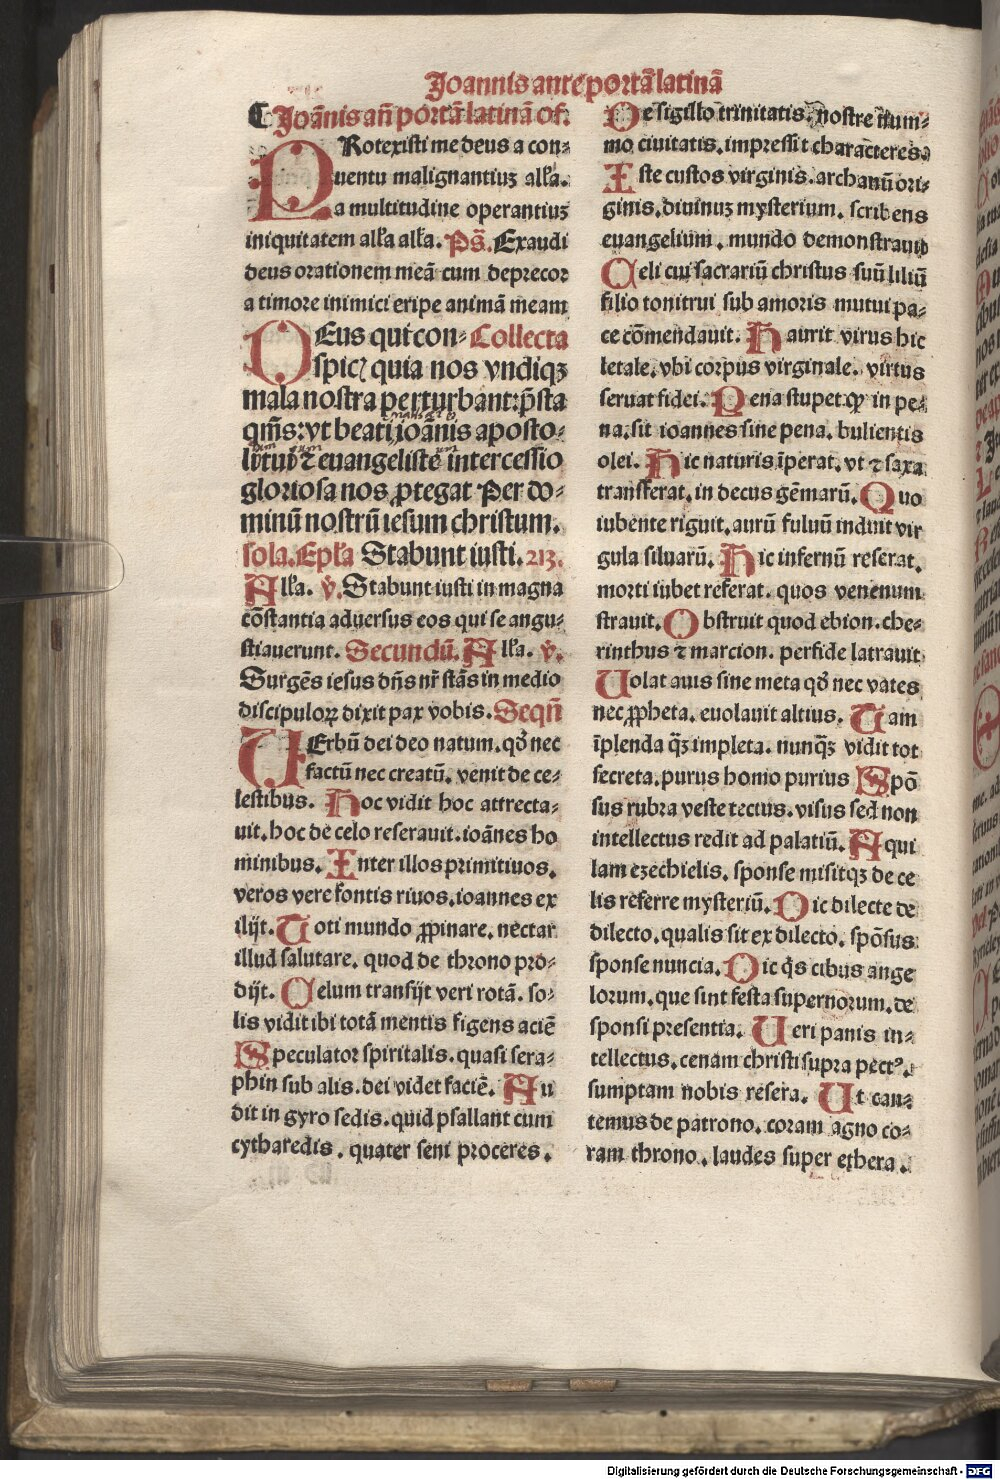 Joannis ante portā latinā
¶ Joānis an̄ portā latinā of.
PRotexisti me deus a con-
uentu malignantiuꝫ all'a.
a multitudine operantiuꝫ
iniquitatem all'a all'a. Ps̄. Exaudi
deus orationem meā cum deprecor
a timore inimici eripe animā meam
DEus qui con- Collecta
spicꝭ quia nos vndiqꝫ
mala nostra perturbant: p̄sta
qm̄s: vt beati ioānis aposto-
li tui ⁊ euangeliste intercessio
gloriosa nos ꝓtegat Per do-
minū nostrū iesum christum.
sola. Epl'a Stabunt iusti. 213.
All'a. v̄. Stabunt iusti in magna
cōstantia aduersus eos qui se angu-
stiauerunt. Secundū. All'a. v̄.
Surgēs iesus dn̄s nr̄ stās in medio
discipuloꝝ dixit pax vobis. Seqn̄
UErbū dei deo natum. qđ nec
factū nec creatū. venit de ce-
lestibus. Hoc vidit hoc attrecta-
uit. hoc de celo reserauit. ioānes ho
minibus. Inter illos primitiuos.
veros vere fontis riuos. ioannes ex
ilijt. Toti mundo ꝓpinare. nectar
illud salutare. quod de throno pro-
dijt. Celum transijt veri rotā. so-
lis vidit ibi totā mentis figens aciē
Speculator spiritalis. quasi sera-
phin sub alis. dei videt faciē. Au
dit in gyro sedis. quid psallant cum
cytharedis. quater seni proceres.
De sigillo trinitatis. nostre num-
mo ciuitatis. impressit characteres.
Iste custos virginis. archanū ori-
ginis. diuinuꝫ mysterium. scribens
euangelium. mundo demonstrauit
Celi cui sacrariū christus suū liliū
filio tonitrui sub amoris mutui pa-
ce cōmendauit. Haurit virus hic
letale. vbi corpus virginale. virtus
seruat fidei. Pena stupet ꝙ in pe-
na. sit ioannes sine pena. bulientis
olei. Hic naturis īperat. vt ⁊ saxa
transferat. in decus gēmarū. Quo
iubente riguit. aurū fuluū induit vir
gula siluarū. Hic infernū reserat.
morti iubet referat. quos venenum
strauit. Obstruit quod ebion. che-
rinthus ⁊ marcion. perfide latrauit
Uolat auis sine meta qđ nec vates
nec ꝓpheta. euolauit altius. Tam
īplenda q̄ꝫ impleta. nunq̄ꝫ vidit tot
secreta. purus homo purius Spō
sus rubra veste tectus. visus sed non
intellectus redit ad palatiū. Aqui
lam ezechielis. sponse misitqꝫ de ce
lis referre mysteriū. Dic dilecte de
dilecto. qualis sit ex dilecto. spōsus
sponse nuncia. Dic q̄s cibus ange
lorum. que sint festa supernorum. de
sponsi presentia. Ueri panis in-
tellectus. cenam christi supra pectꝰ.
sumptam nobis resera. Ut can-
temus de patrono. coram agno co-
ram throno. laudes super ethera.
Digitalisierung gefördert durch die Deutsche Forschungsgemeinschaft - DFG